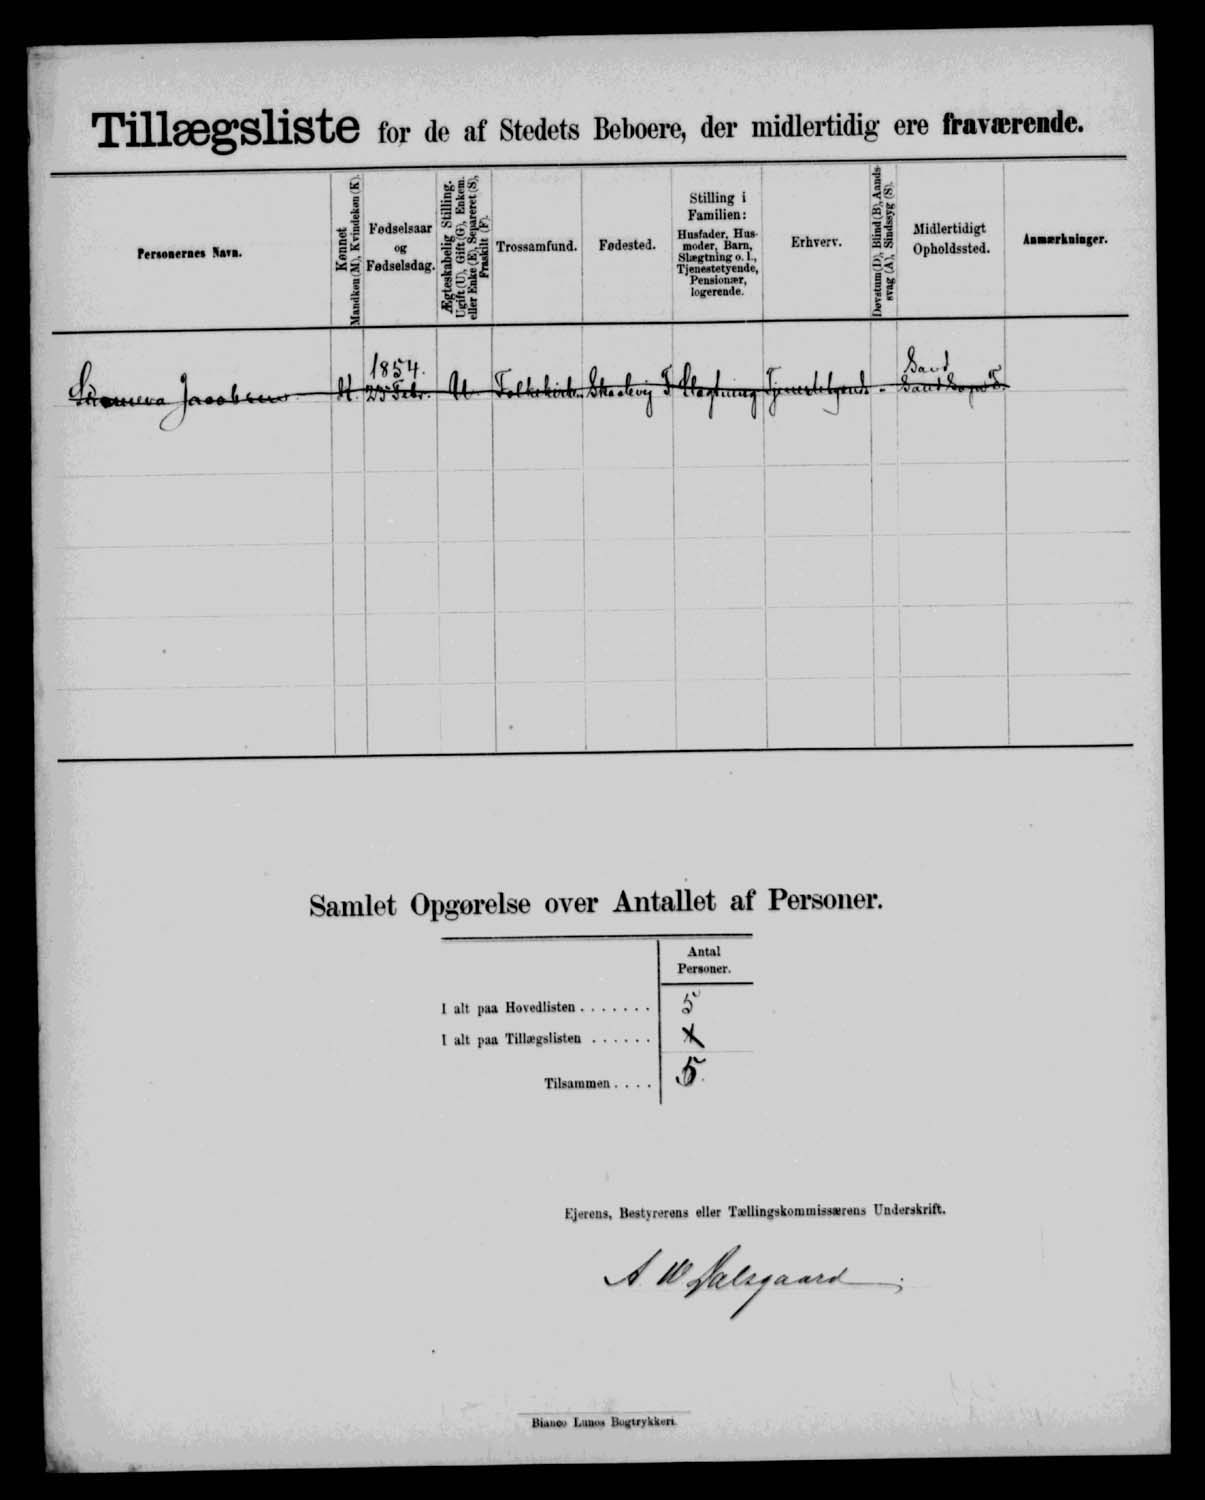 Tillægsliste for de af Stedets Beboere, der midlertidig ere fraværende.
Personernes Navn.
Kønnet
Mandkøn (M), Kvindekøn (K).
Fødselsaar
og
Fødselsdag.
Ægteskabelig Stilling.
Ugift (U), Gift (G), Enkem.
eller Enke (E), Separeret (S),
Fraskilt (F).
Trossamfund.
Fødested.
Stilling i
Familien:
Husfader, Hus-
moder, Barn,
Slægtning o. l.,
Tjenestetyende,
Pensionær,
logerende.
Erhverv.
Døvstum (D), Blind (B), Aands-
svag (A), Sindssyg (S).
Midlertidigt
Opholdssted.
Anmærkninger.
Jacobsen
1854.
25 Febr.
U.
Slægtning
Samlet Opgørelse over Antallet af Personer.
Antal
Personer.
I alt paa Hovedlisten . . . . . . . 5
I alt paa Tillægslisten . . . . . .
Tilsammen . . . . 5.
Ejerens, Bestyrerens eller Tællingskommissærens Underskrift.
A W Dalsgaard
Bianco Lunos Bogtrykkeri.